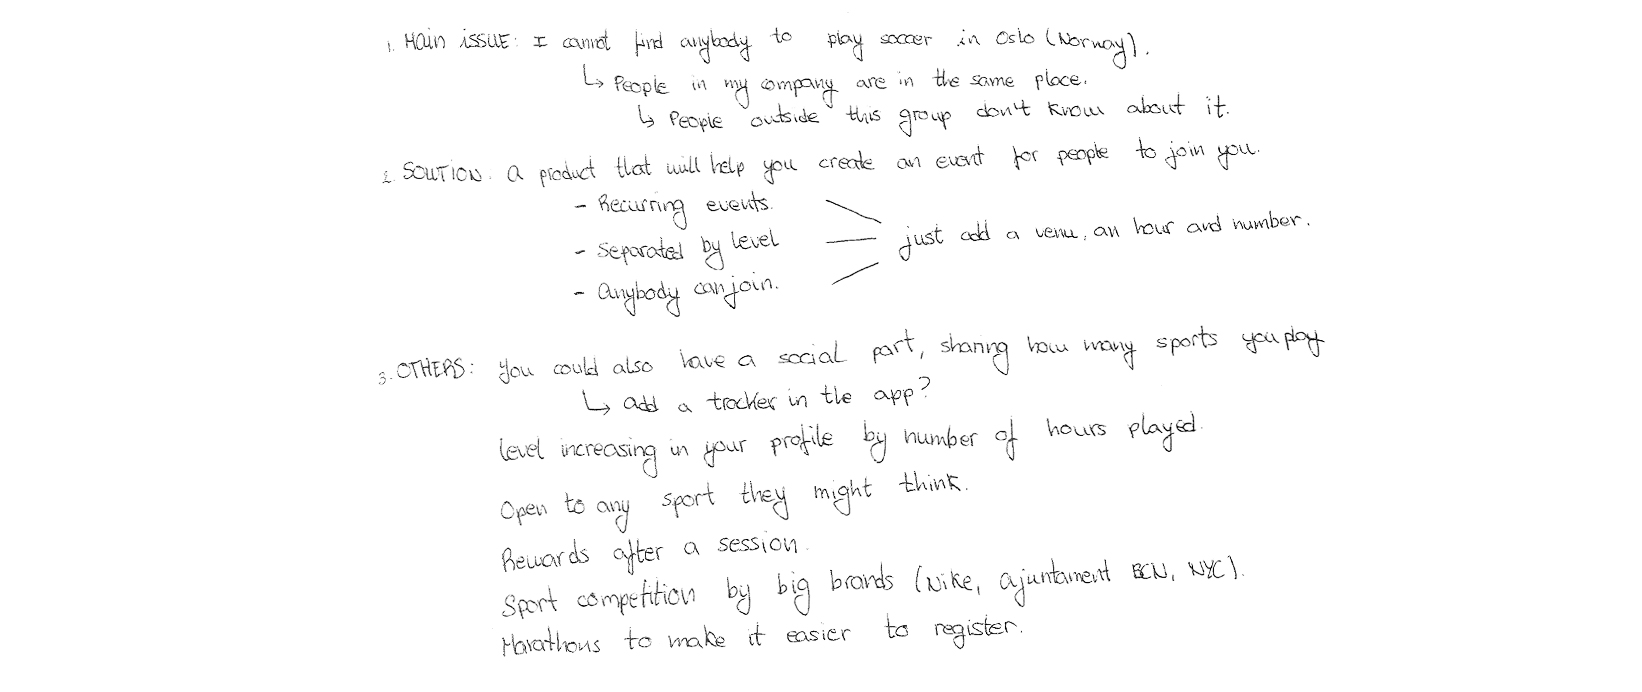 1. Main issue: I cannot find anybody to play soccer in Oslo (Norway).
↳ People in my company are in the same place.
↳ People outside this group don't know about it.
2. SOLUTION. A product that will help you create an event for people to join you.
- Recurring events.
- Separated by level
just add a venu, an hour and number.
- Anybody can join.
3. OTHERS: You could also have a social part, sharing how many sports you play
↳ add a tracker in the app?
Level increasing in your profile by number of hours played.
Open to any sport they might think.
Rewards after a session.
Sport competition by big brands (Nike, ajuntament BCN, NYC).
Marathons to make it easier to register.